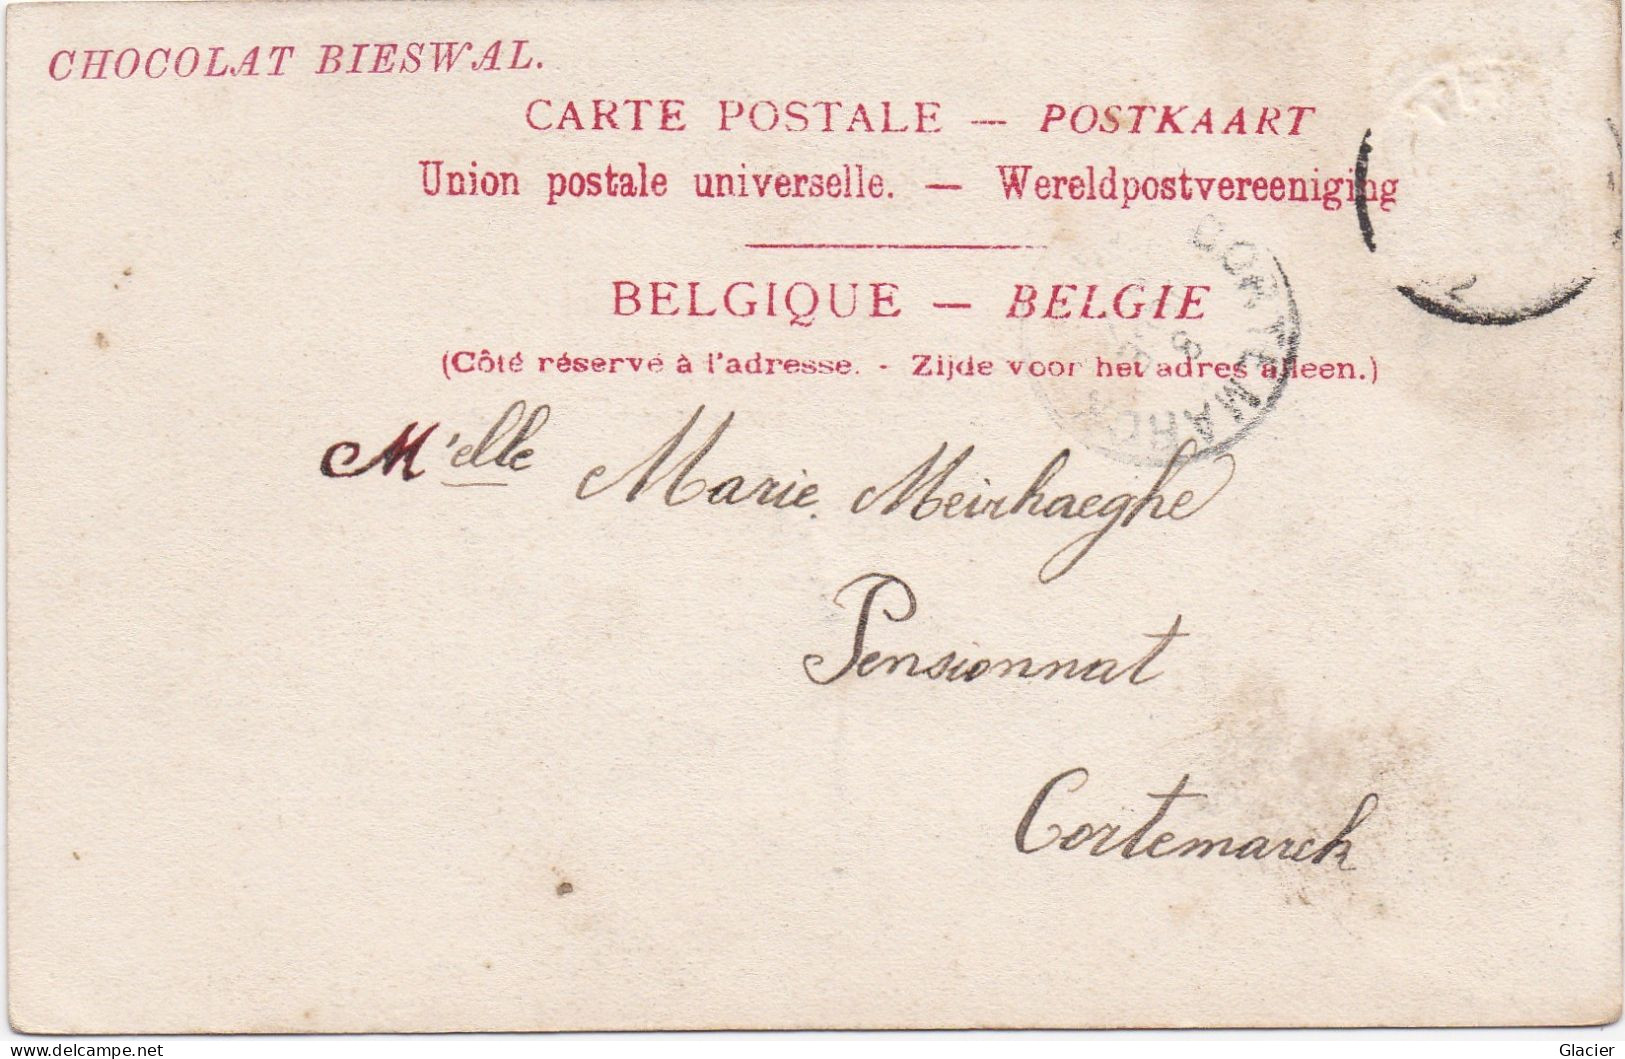 CHOCOLAT BIESWAL.
CARTE POSTALE — POSTKAART
Union postale universelle. — Wereldpostvereeniging
BELGIQUE — BELGIE
(Côté réservé à l'adresse. - Zijde voor het adres alleen.)
CORTEMARCK
M'elle Marie Meirhaeghe
Pensionnat
Cortemarck
delcampe.net
Glacier